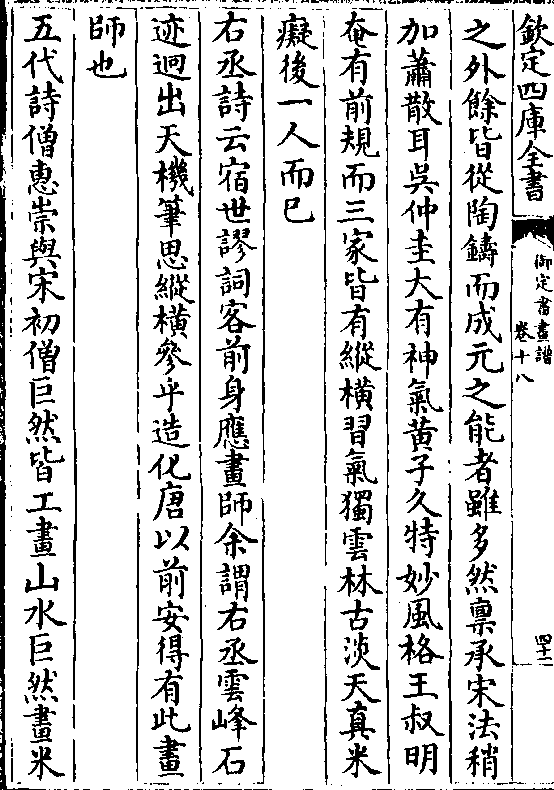 欽定四庫全書
御定書畫譜
卷十八
四十二
之外餘皆從陶鑄而成元之能者雖多然禀承宋法稍
加蕭散耳吳仲圭大有神氣黃子久特妙風格王叔明
奄有前規而三家皆有縱橫習氣獨雲林古淡天真米
癡後一人而已
右丞詩云宿世謬詞客前身應畫師余謂右丞雲峰石
迹迥出天機筆思縱橫參乎造化唐以前安得有此畫
師也
五代詩僧惠崇與宋初僧巨然皆工畫山水巨然畫米